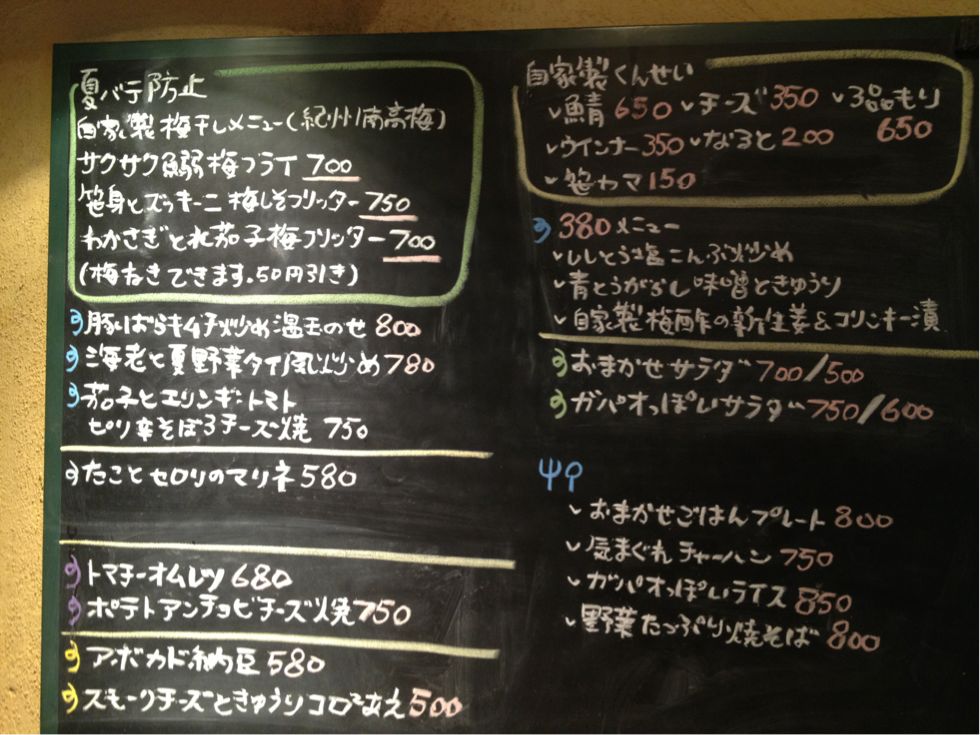 夏バテ防止
自家製梅干しメニュー(紀州南高梅)
サクサク鰯梅フライ 700
笹身とズッキーニ梅しそフリッター 750
わかさぎと水茄子梅フリッター 700
(梅ぬきできます.50円引き)
豚ばらキムチ炒め温玉のせ 800
海老と夏野菜タイ風炒め 780
茄子とエリンギ:トマト
ピリ辛そぼろチーズ焼 750
たことセロリのマリネ 580
トマチーオムレツ 680
ポテトアンチョビチーズ焼 750
アボカド納豆 580
スモークチーズときゅうりコロコロあえ 500
自家製くんせい
鯖 650 チーズ 350 3品もり
650
ウインナー 350 なると 200
笹カマ 150
380メニュー
ししとう塩こんぶ炒め
青とうがらし味噌ときゅうり
自家製梅酢の新生姜&コリンキー漬
おまかせサラダ 700/500
ガパオっぽいサラダ 750/600
おまかせごはんプレート 800
気まぐれチャーハン 750
ガパオっぽいライス 850
野菜たっぷり焼そば 800